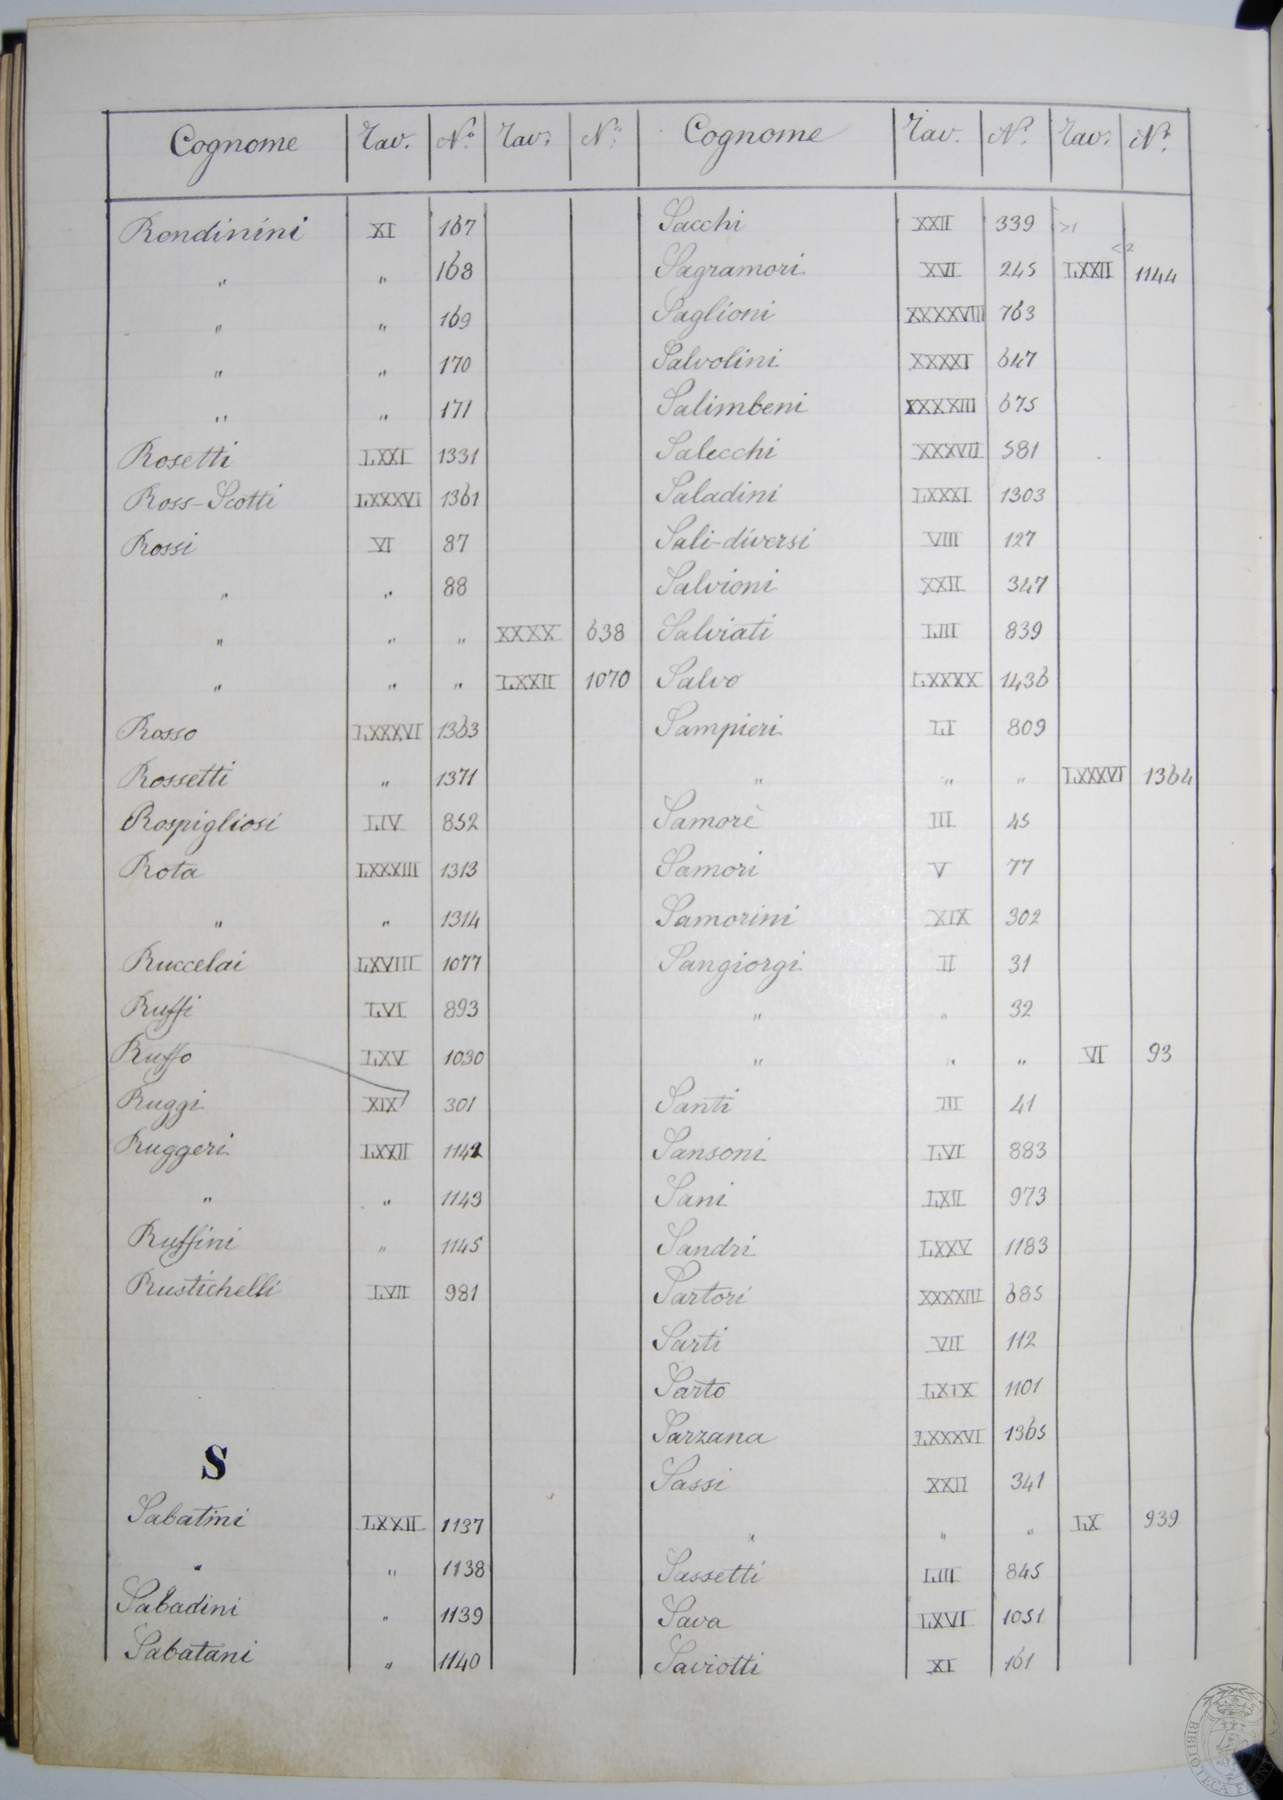 Cognome Tav. N.º Tav. N.º
Rondinini XI 167
" " 168
" " 169
" " 170
" " 171
Rosetti LXXI 1331
Ross-Scotti LXXXVI 1361
Rossi VI 87
" " 88
" " " XXXX 638
" " " LXXII 1070
Rosso LXXXVI 1363
Rossetti " 1371
Rospigliosi LIV 852
Rota LXXXIII 1313
" " 1314
Ruccelai LXVIII 1077
Ruffi LVI 893
Ruffo LXV 1030
Ruggi XIX 301
Ruggeri LXXII 1142
" " 1143
Ruffini " 1145
Rustichelli LVII 981
S
Sabatini LXXII 1137
" " 1138
Sabadini " 1139
Sabatani " 1140
Cognome Tav. N.º Tav. N.º
Sacchi XXII 339
Sagramori XVI 245 LXXII 1144
Saglioni XXXXVIII 763
Salvolini XXXXI 647
Salimbeni XXXXIII 675
Salecchi XXXVII 581
Saladini LXXXI 1303
Sali-diversi VIII 127
Salvioni XXII 347
Salviati LIII 839
Salvo LXXXX 1436
Sampieri LI 809
" " " LXXXVI 1364
Samorè III 45
Samori V 77
Samorini XIX 302
Sangiorgi II 31
" " 32
" " " VI 93
Santi III 41
Sansoni LVI 883
Sani LXII 973
Sandri LXXV 1183
Sartori XXXXIII 685
Sarti VII 112
Sarto LXIX 1101
Sarzana LXXXVI 1365
Sassi XXII 341
" " " LX 939
Sassetti LIII 845
Sava LXVI 1051
Saviotti XI 161
BIBLIOTECA